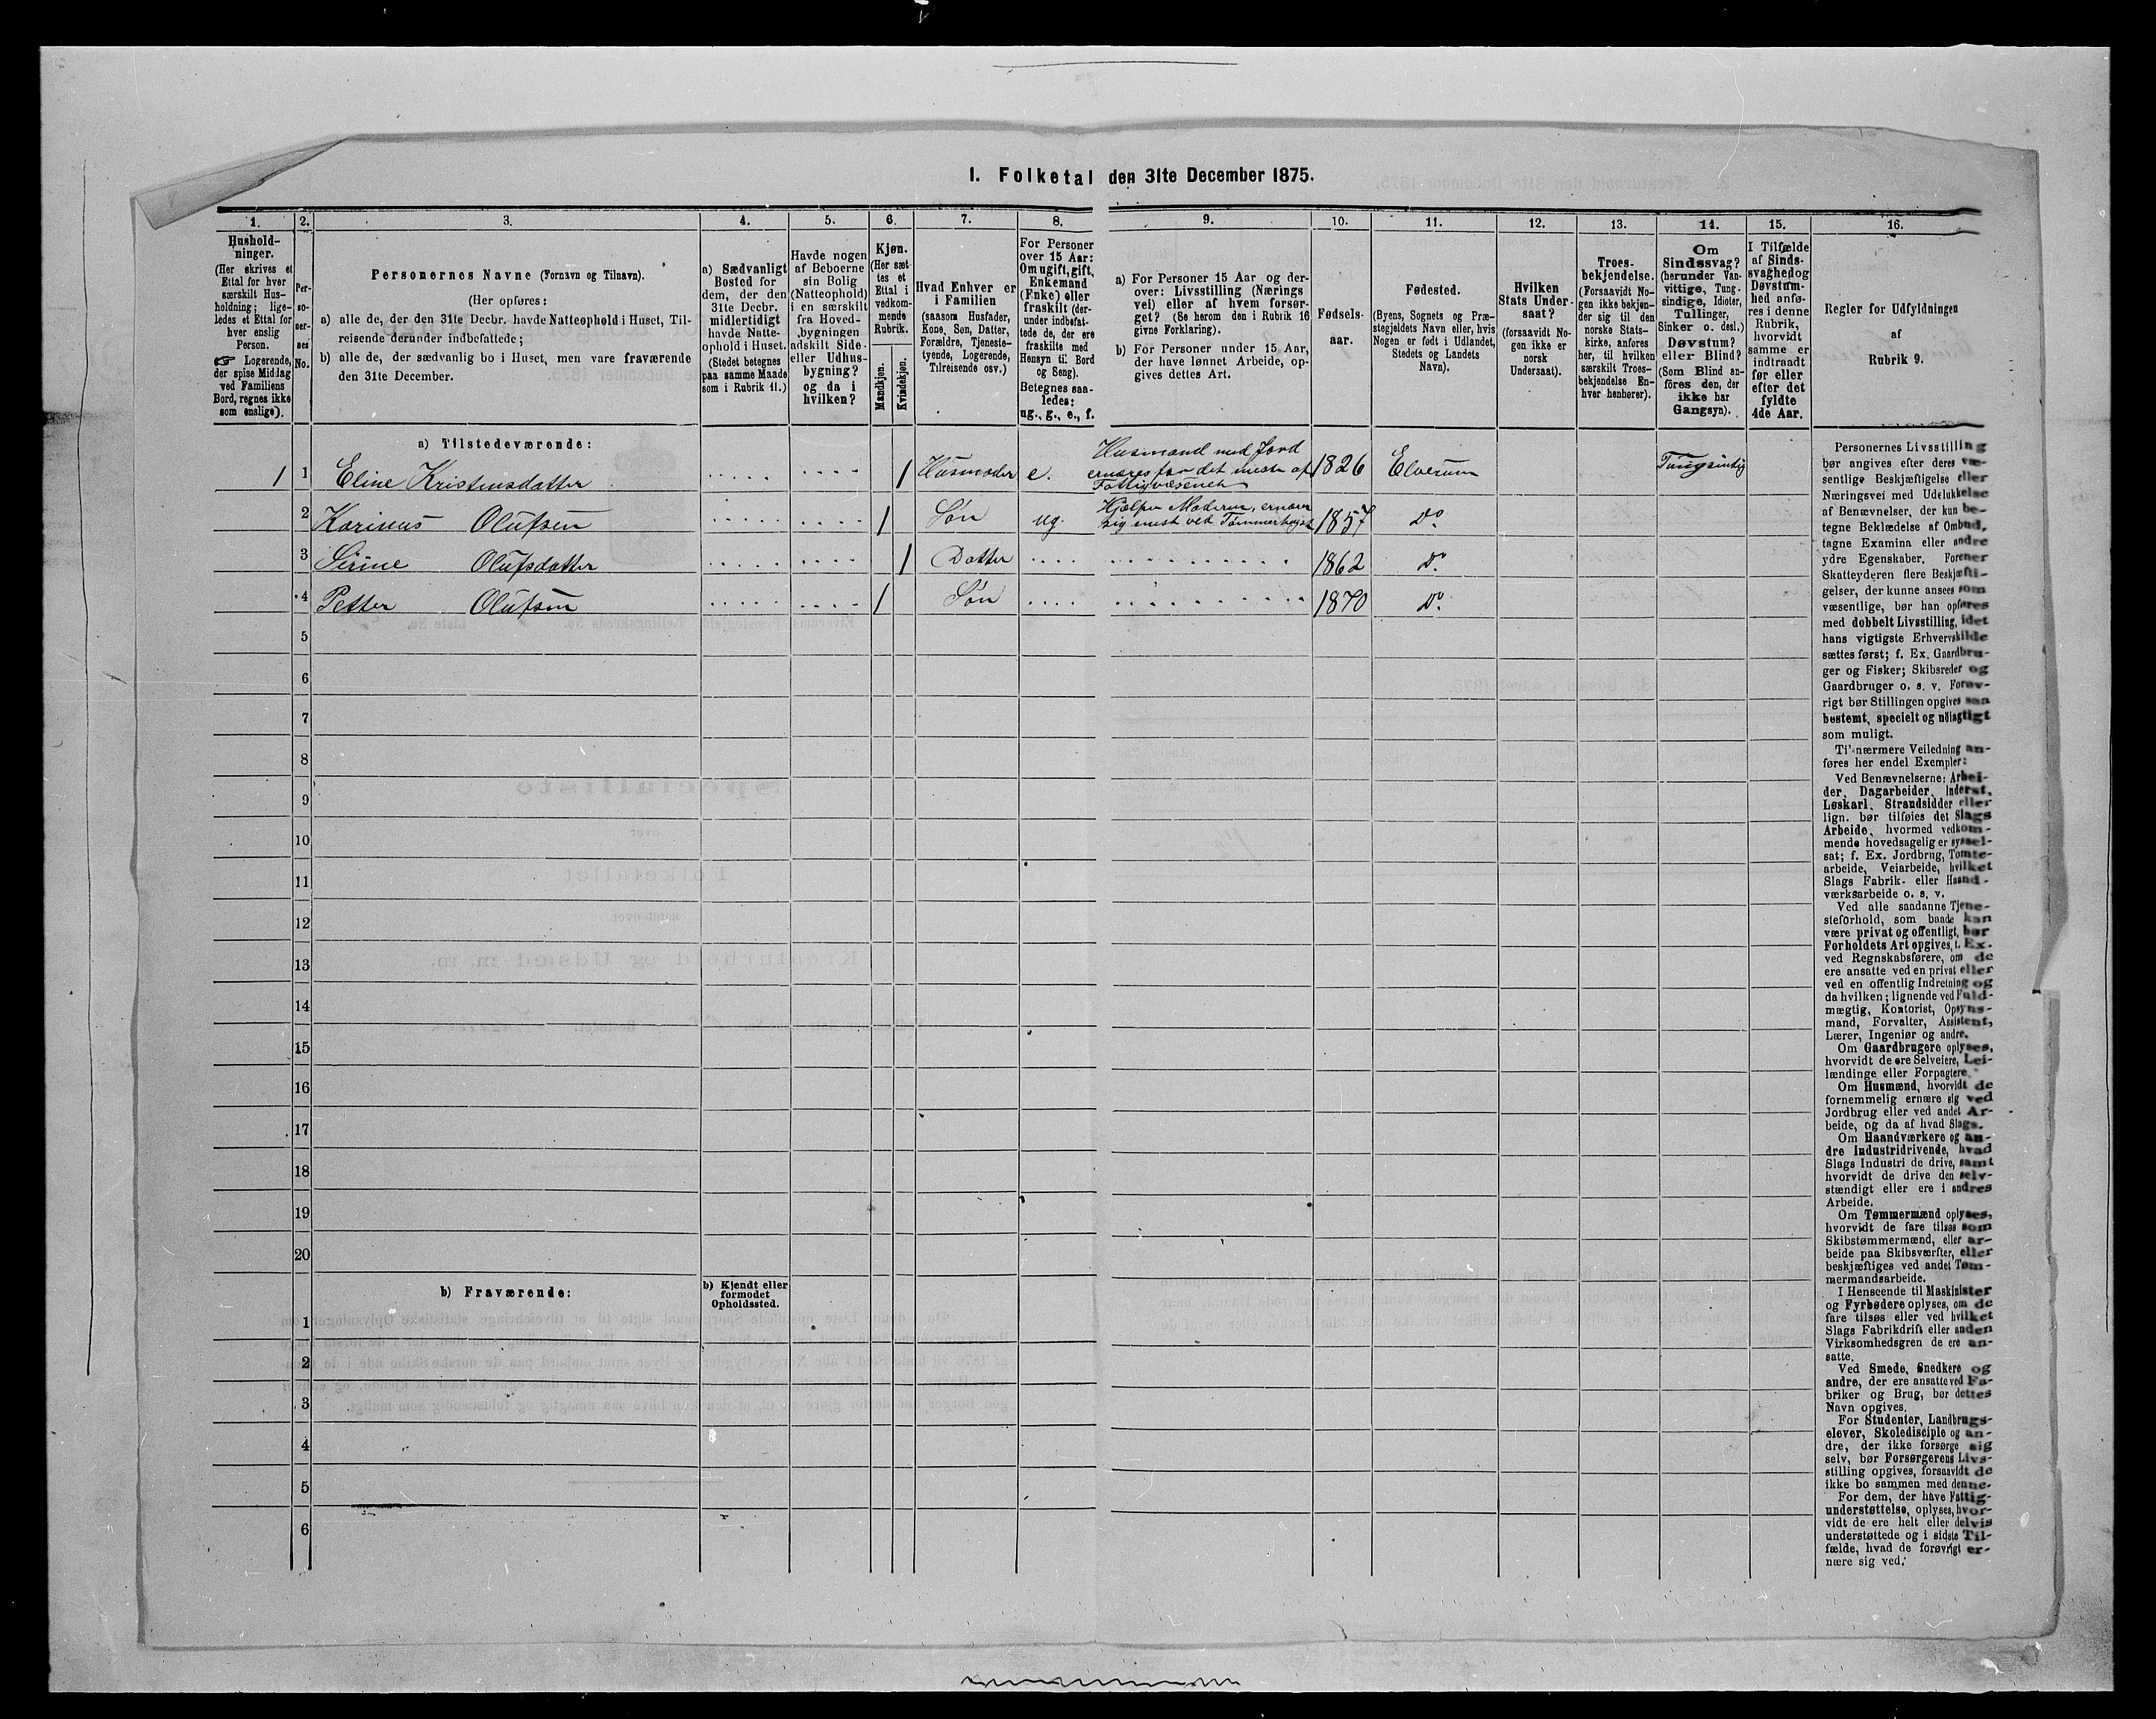 1. Folketal den 31te December 1875.
1. 2. 3. 4. 5. 6. 7. 8. 9. 10. 11. 12. 13. 14. 15. 16.
Hushold-
ninger.
(Her skrives et
Ettal for hver
særskilt Hus-
holdning; lige-
ledes et Ettal for
hver enslig
Person.
☞ Logerende,
der spise Middag
ved Familiens
Bord, regnes ikke
som enslige).
Per-
so-
ner-
nes
No.
Personernes Navne (Fornavn og Tilnavn).
(Her opføres:
a) alle de, der den 31te Decbr. havde Natteophold i Huset, Til-
reisende derunder indbefattede;
b) alle de, der sædvanlig bo i Huset, men vare fraværende
den 31te December.
a) Sædvanligt
Bosted for
dem, der den
31te Decbr.
midlertidigt
havde Natte-
ophold i Huset.
(Stedet betegnes
paa samme Maade
som i Rubrik 11.)
Havde nogen
af Beboerne
sin Bolig
(Natteophold)
i en særskilt
fra Hoved-
bygningen
adskilt Side-
eller Udhus-
bygning?
og da i
hvilken?
Kjøn.
(Her sæt
tes et
Ettal i
vedkom-
mende
Rubrik.
Mandkjøn.
Kvindekjøn.
Hvad Enhver er
i Familien
(saasom Husfader,
Kone, Søn, Datter,
Forældre, Tjeneste-
tyende, Logerende,
Tilreisende osv.)
For Personer
over 15 Aar:
Om ugift, gift,
Enkemand
(Enke) eller
fraskilt (der-
under indbefat-
tede de, der ere
fraskilte med
Hensyn til Bord
og Seng).
Betegnes saa-
ledes:
ug., g., e., f.
a) For Personer 15 Aar og der-
over: Livsstilling (Nærings
vei) eller af hvem forsør-
get? (Se herom den i Rubrik 16
givne Forklaring).
b) For Personer under 15 Aar,
der have lønnet Arbeide, op-
gives dettes Art.
Fødsels-
aar.
Fødested.
(Byens, Sognets og Præ-
stegjeldets Navn eller, hvis
Nogen er født i Udlandet,
Stedets og Landets
Navn).
Hvilken
Stats Under-
saat?
(forsaavidt No-
gen ikke er
norsk
Undersaat).
Troes-
bekjendelse.
(Forsaavidt No-
gen ikke bekjen-
der sig til den
norske Stats-
kirke, anføres
her, til hvilken
særskilt Troes-
bekjendelse En-
hver henhører).
Om
Sindssvag?
(herunder Van-
vittige, Tung-
sindige, Idioter,
Tullinger,
Sinker o. desl.)
Døvstum?
eller Blind?
(Som Blind an-
føres den, der
ikke har
Gangsyn).
I Tilfælde
af Sinds-
svaghed og
Døvstum-
hed anfø-
res i denne
Rubrik,
hvorvidt
samme er
indtraadt
før eller
efter det
fyldte
4de Aar.
Regler for Udfyldningen
af
Rubrik 9.
a) Tilstedeværende:
1 1 Eline Kristensdatter 1 Husmoder e. Husmand med Jord
ernæres for det meste af
Fattigvæsenet 1826 Elverum Tungsindig
2 Karinus Olufsen 1 Søn ug. Hjælper Moderen, ernærer
sig mest ved Tømmerhugst 1857 Do.
3 Sirine Olufsdatter 1 Datter 1862 Do.
4 Petter Olufsen 1 Søn 1870 Do.
5
6
7
8
9
10
11
12
13
14
15
16
17
18
19
20
b) Fraværende:
b) Kjendt eller
formodet
Opholdssted.
1
2
3
4
5
6
Personernes Livsstilling
bør angives efter deres væ-
sentlige Beskjæftigelse eller
Næringsvei med Udelukkelse
af Benævnelser, der kun be-
tegne Beklædelse af Ombud,
tagne Examina eller andre
ydre Egenskaber. Forener
Skatteyderen flere Beskjæfti-
gelser, der kunne ansees som
væsentlige, bør han opføres
med dobbelt Livsstilling, idet
hans vigtigste Erhvervskilde
sættes først; f. Ex. Gaardbru-
ger og Fisker; Skibsreder og
Gaardbruger o. s. v. Forøv-
rigt bør Stillingen opgives saa
bestemt, specielt og nøiagtigt
som muligt.
Til nærmere Veiledning an-
føres her endel Exempler:
Ved Benævnelserne: Arbei-
der, Dagarbeider, Inderst,
Løskarl, Strandsidder eller
lign. bør tilføies det Slags
Arbeide, hvormed vedkom-
mende hovedsagelig er syssel-
sat; f. Ex. Jordbrug, Tomte-
arbeide, Veiarbeide, hvilket
Slags Fabrik- eller Haand-
værksarbeide o. s. v.
Ved alle saadanne Tjene-
steforhold, som baade kan
være privat og offentligt, bør
Forholdets Art opgives, f. Ex.
ved Regnskabsførere, om de
ere ansatte ved en privat eller
ved en offentlig Indretning og
da hvilken; lignende ved Fuld-
mægtig, Kontorist, Opsyns-
mand, Forvalter, Assistent,
Lærer, Ingeniør og andre.
Om Gaardbrugere oplyses,
hvorvidt de ere Selveiere, Lei-
lændinge eller Forpagtere.
Om Husmænd, hvorvidt de
fornemmelig ernære sig ved
Jordbrug eller ved andet Ar-
beide, og da af hvad Slags.
Om Haandværkere og an-
dre Industridrivende, hvad
Slags Industri de drive, samt
hvorvidt de drive den selv-
stændigt eller ere i andres
Arbeide.
Om Tømmermænd oplyses,
hvorvidt de fare tilsøs som
Skibstømmermænd, eller ar-
beide paa Skibsværfter, eller
beskjæftiges ved andet Tøm-
mermandsarbeide.
I Henseende til Maskinister
og Fyrbødere oplyses, om de
fare tilsøs eller ved hvilket
Slags Fabrikdrift eller anden
Virksomhedsgren de ere an-
satte.
Ved Smede, Snedkere og
andre, der ere ansatte ved Fa-
briker og Brug, bør dettes
Navn opgives.
For Studenter, Landbrugs-
elever, Skoledisciple og an-
dre, der ikke forsørge sig
selv, bør Forsørgerens Livs-
stilling opgives, forsaavidt de
ikke bo sammen med denne.
For dem, der have Fattig-
understøttelse, oplyses, hvor-
vidt de ere helt eller delvis
understøttede og i sidste Til-
fælde, hvad de forøvrigt er-
nære sig ved.